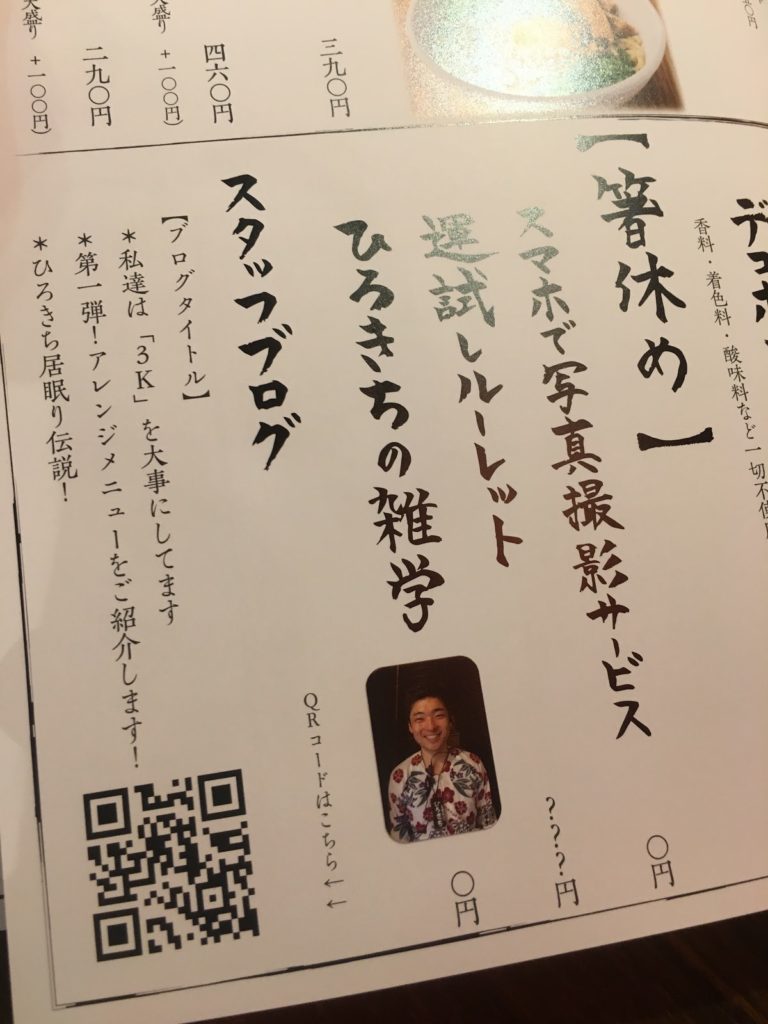 三九〇円
四六〇円
大盛り +一〇〇円)
二九〇円
大盛り +一〇〇円)
香料・着色料・酸味料など一切不使用
【箸休め】
スマホで写真撮影サービス
〇円
運試しルーレット
???円
ひろきちの雑学
〇円
QRコードはこちら←←
スタッフブログ
【ブログタイトル】
*私達は「3K」を大事にしてます
*第一弾!アレンジメニューをご紹介します!
*ひろきち居眠り伝説!